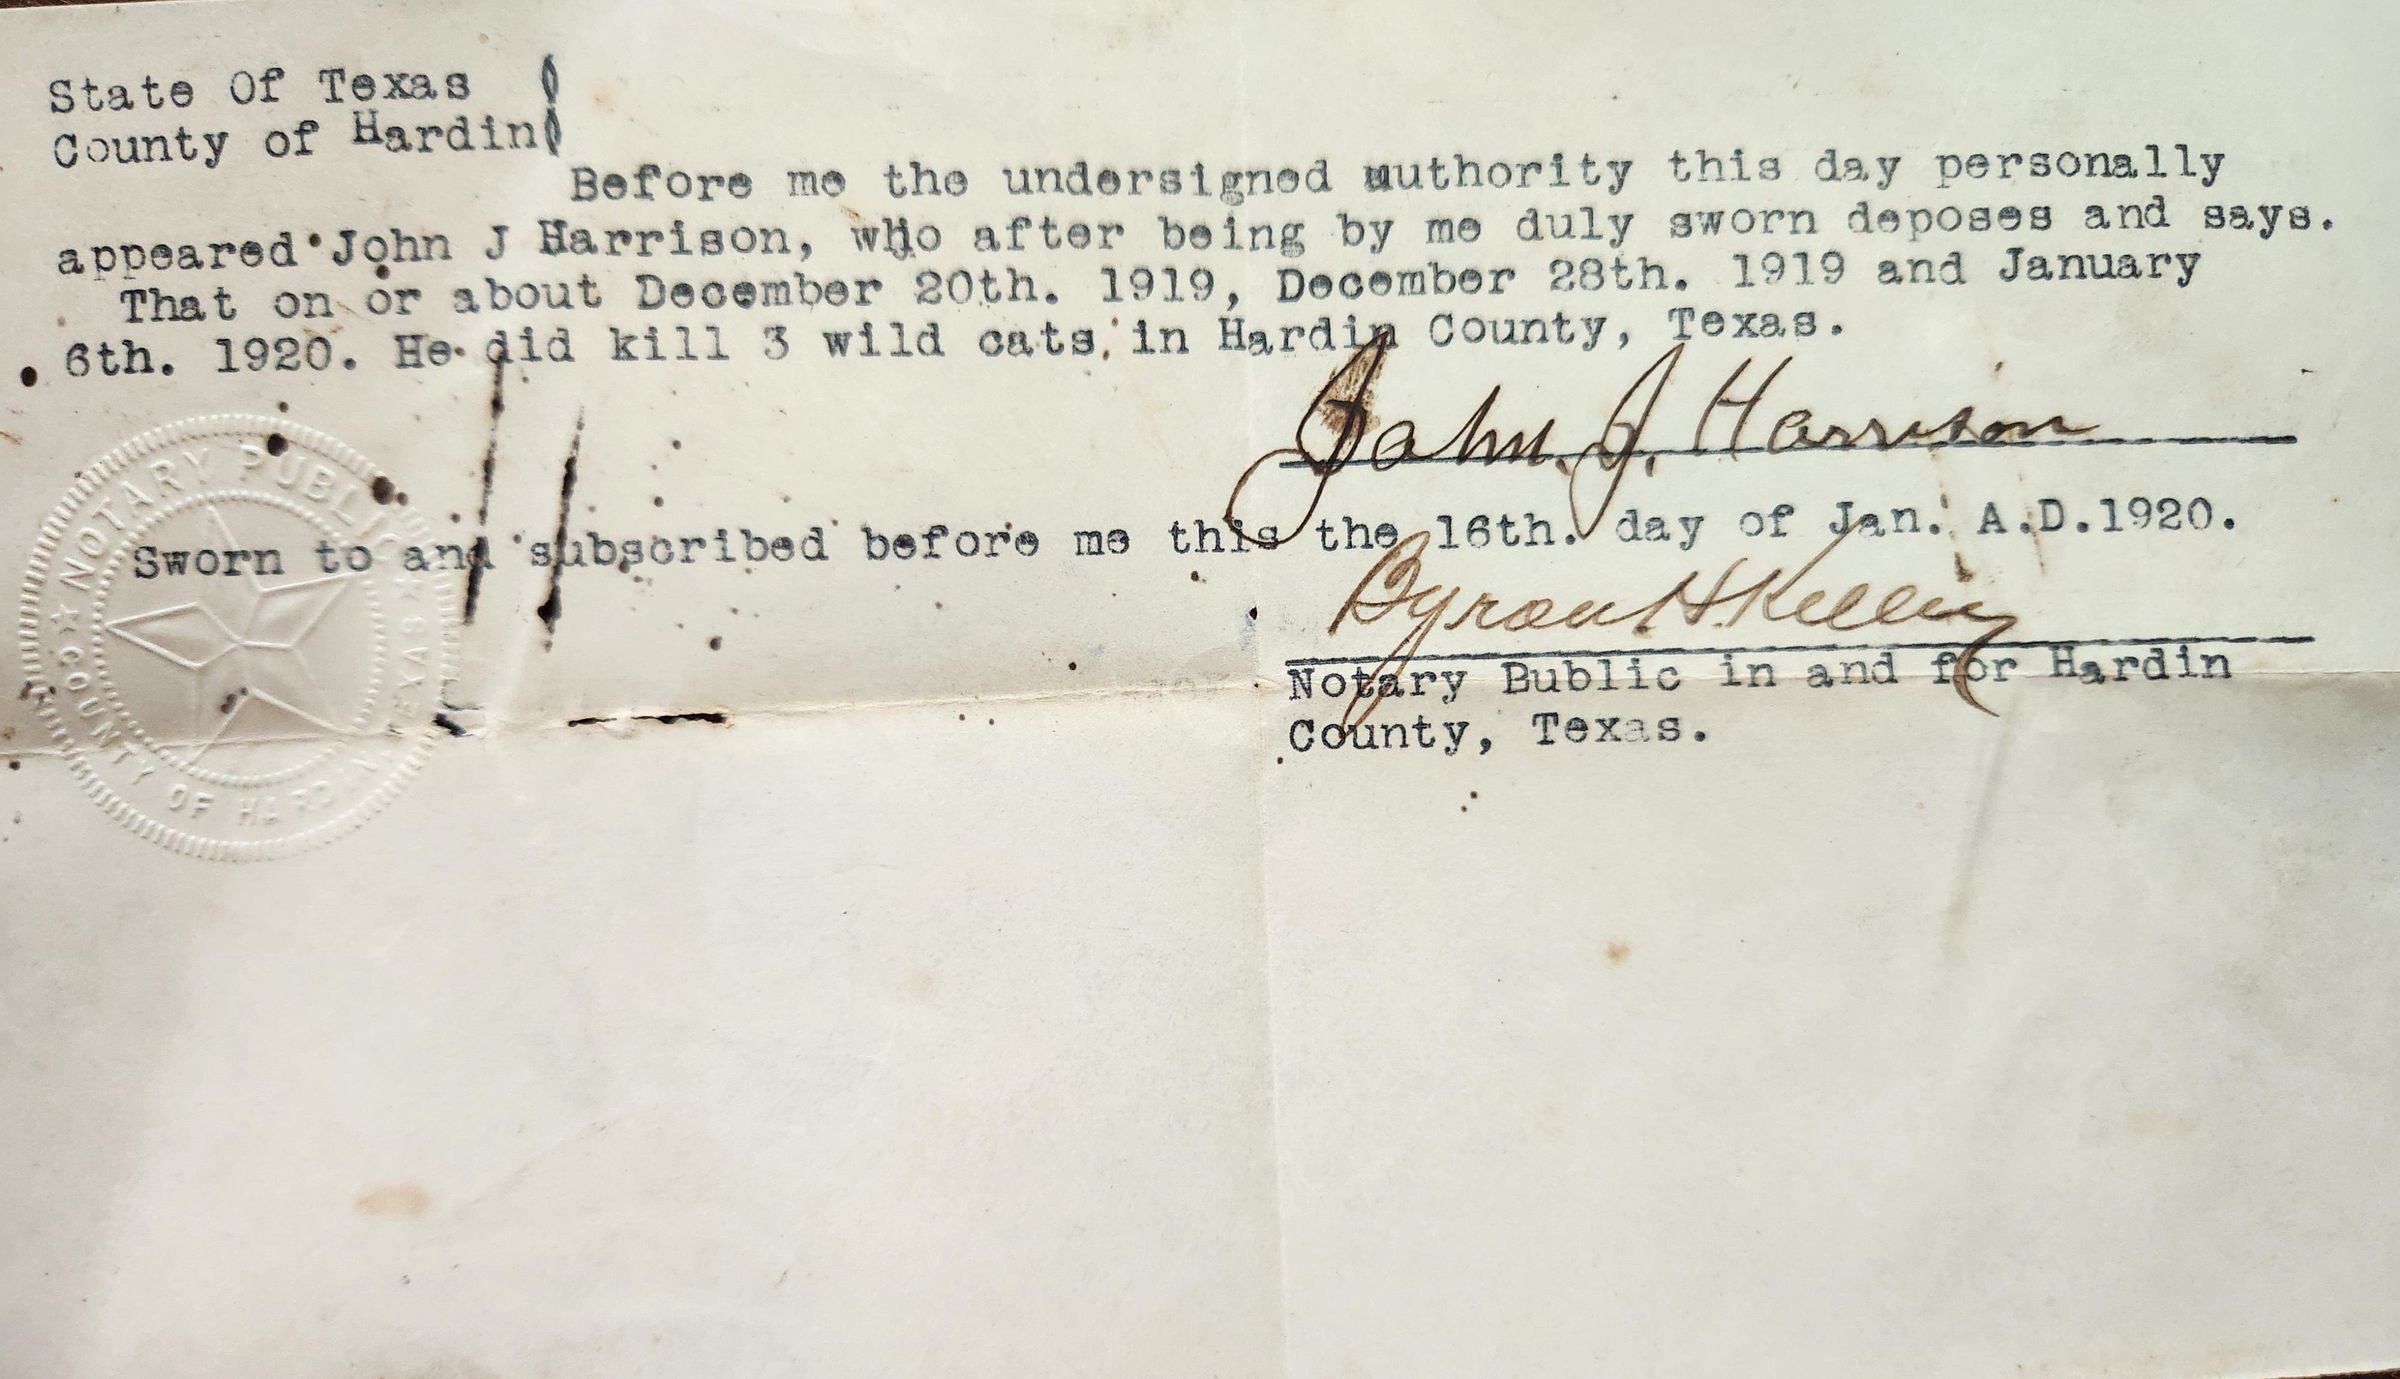 State Of Texas (
County of Hardin(
Before me the undersigned authority this day personally
appeared John J Harrison, who after being by me duly sworn deposes and says.
That on or about December 20th. 1919, December 28th. 1919 and January
6th. 1920. He did kill 3 wild cats in Hardin County, Texas.
John. J. Harrison
Sworn to and subscribed before me this the 16th. day of Jan. A.D.1920.
Byron H. Kelley
Notary Bublic in and for Hardin
County, Texas.
NOTARY PUBLIC
COUNTY OF HARDIN TEXAS